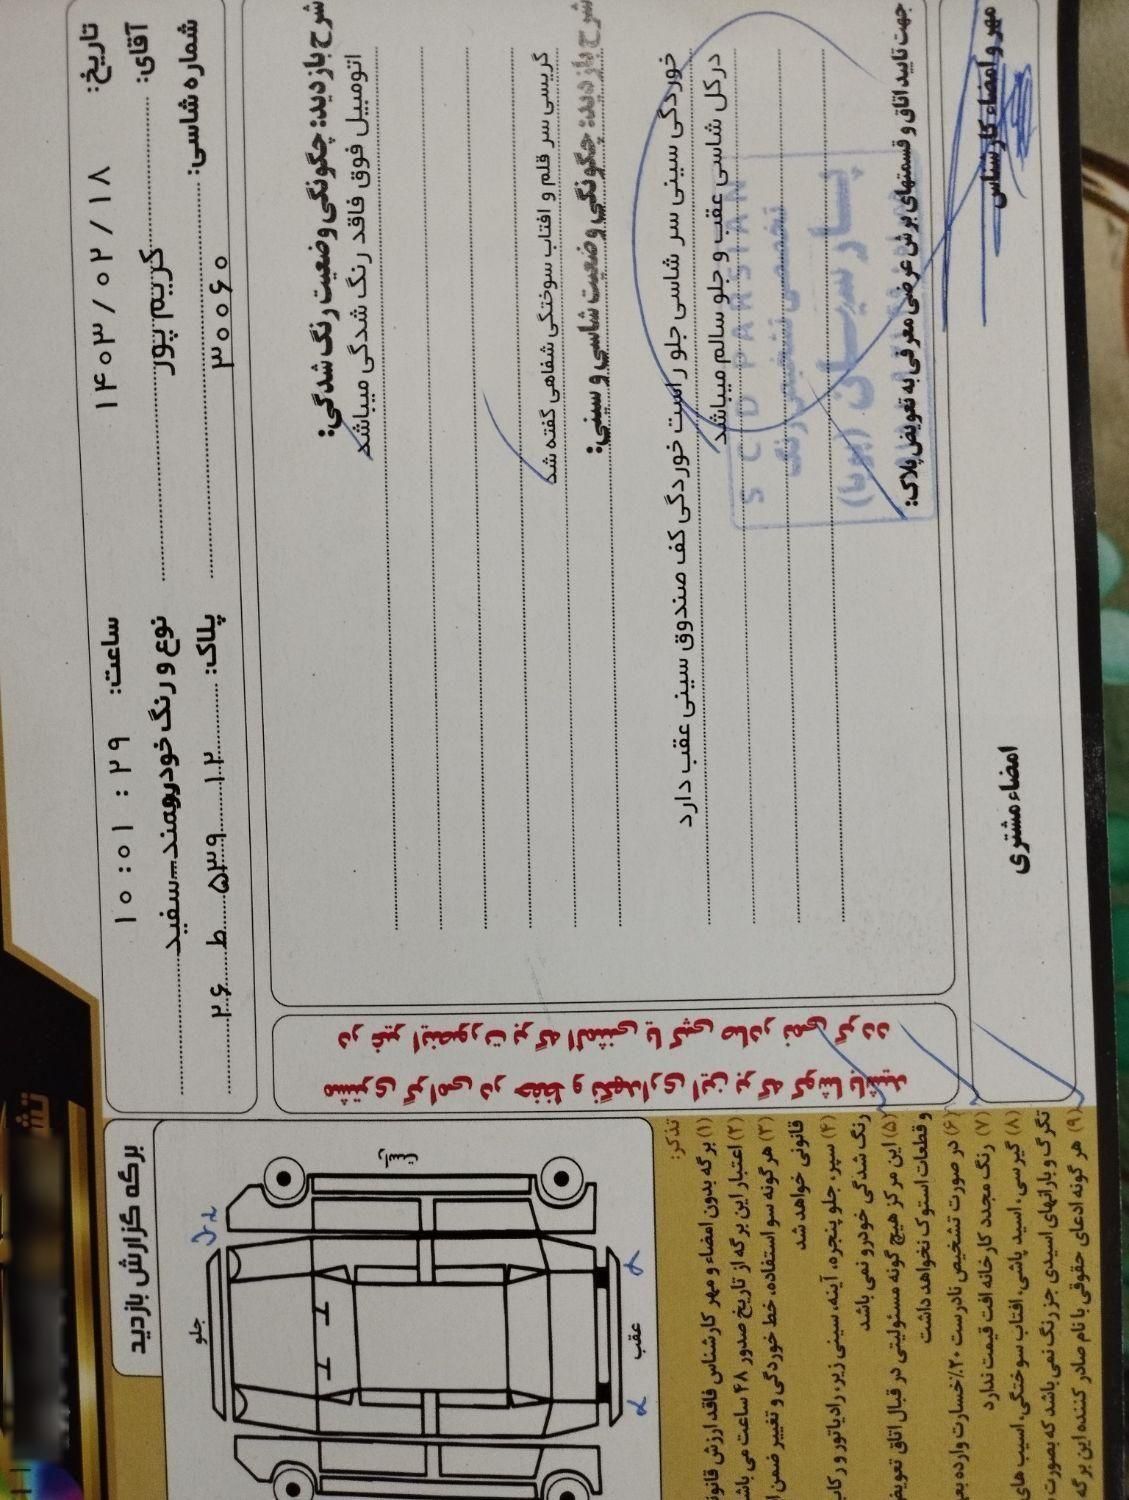 برگه گزارش بازدید
تاریخ: ۱۴۰۳/۰۲/۱۸
ساعت: ۱۰:۰۱:۲۹
آقای: کریم پور
نوع و رنگ خودرو: سمند-سفید
شماره شاسی: ۳۰۰۶۰
پلاک: ۱۲ ۵۳۹ ط ۲۶
شرح بازدید: چگونگی وضعیت رنگ شدگی:
اتومبیل فوق فاقد رنگ شدگی میباشد
گریسی سر قلم و افتاب سوختگی شفاهی گفته شد
شرح بازدید: چگونگی وضعیت شاسی و سینی:
خوردگی سینی سر شاسی جلو راست خوردگی کف صندوق سینی عقب دارد
درکل شاسی عقب و جلو سالم میباشد
S C D PARSIAN
تخصصی تشخیص رنگ
پارسیان (پویا)
جهت تایید اتاق و قسمتهای برش عرضی معرفی به تعویض پلاک:
مهر و امضاء کارشناس
امضاء مشتری
مشتری گرامی در حفظ و نگهداری این برگه کوشا باشید
در غیر اینصورت برگه المثنی یا کپی صادر نمی گردد
جلو
راست
عقب
تذکر:
۱) برگه بدون امضاء و مهر کارشناس فاقد ارزش
۲) اعتبار این برگه از تاریخ صدور ۴۸ ساعت می
۳) هر گونه سو استفاده، خط خوردگی و تغییر ضمن
قانونی خواهد شد
۴) سپر، جلو پنجره، آینه، سینی زیر، رادیاتور و
رنگ شدگی خودرو نمی باشد
۵) این مرکز هیچ گونه مسئولیتی در قبال اتاق
و قطعات استوک نخواهد داشت
۶) در صورت تشخیص نادرست ۲۰٪ خسارت وارده
۷) رنگ مجدد کارخانه افت قیمت ندارد
۸) گیرسی، اسید پاشی، افتاب سوختگی، اسیب های
تگرگ و بارانهای اسیدی جز رنگ نمی باشد که بصورت
۹) هر گونه ادعای حقوقی با نام صادر کننده این برگه